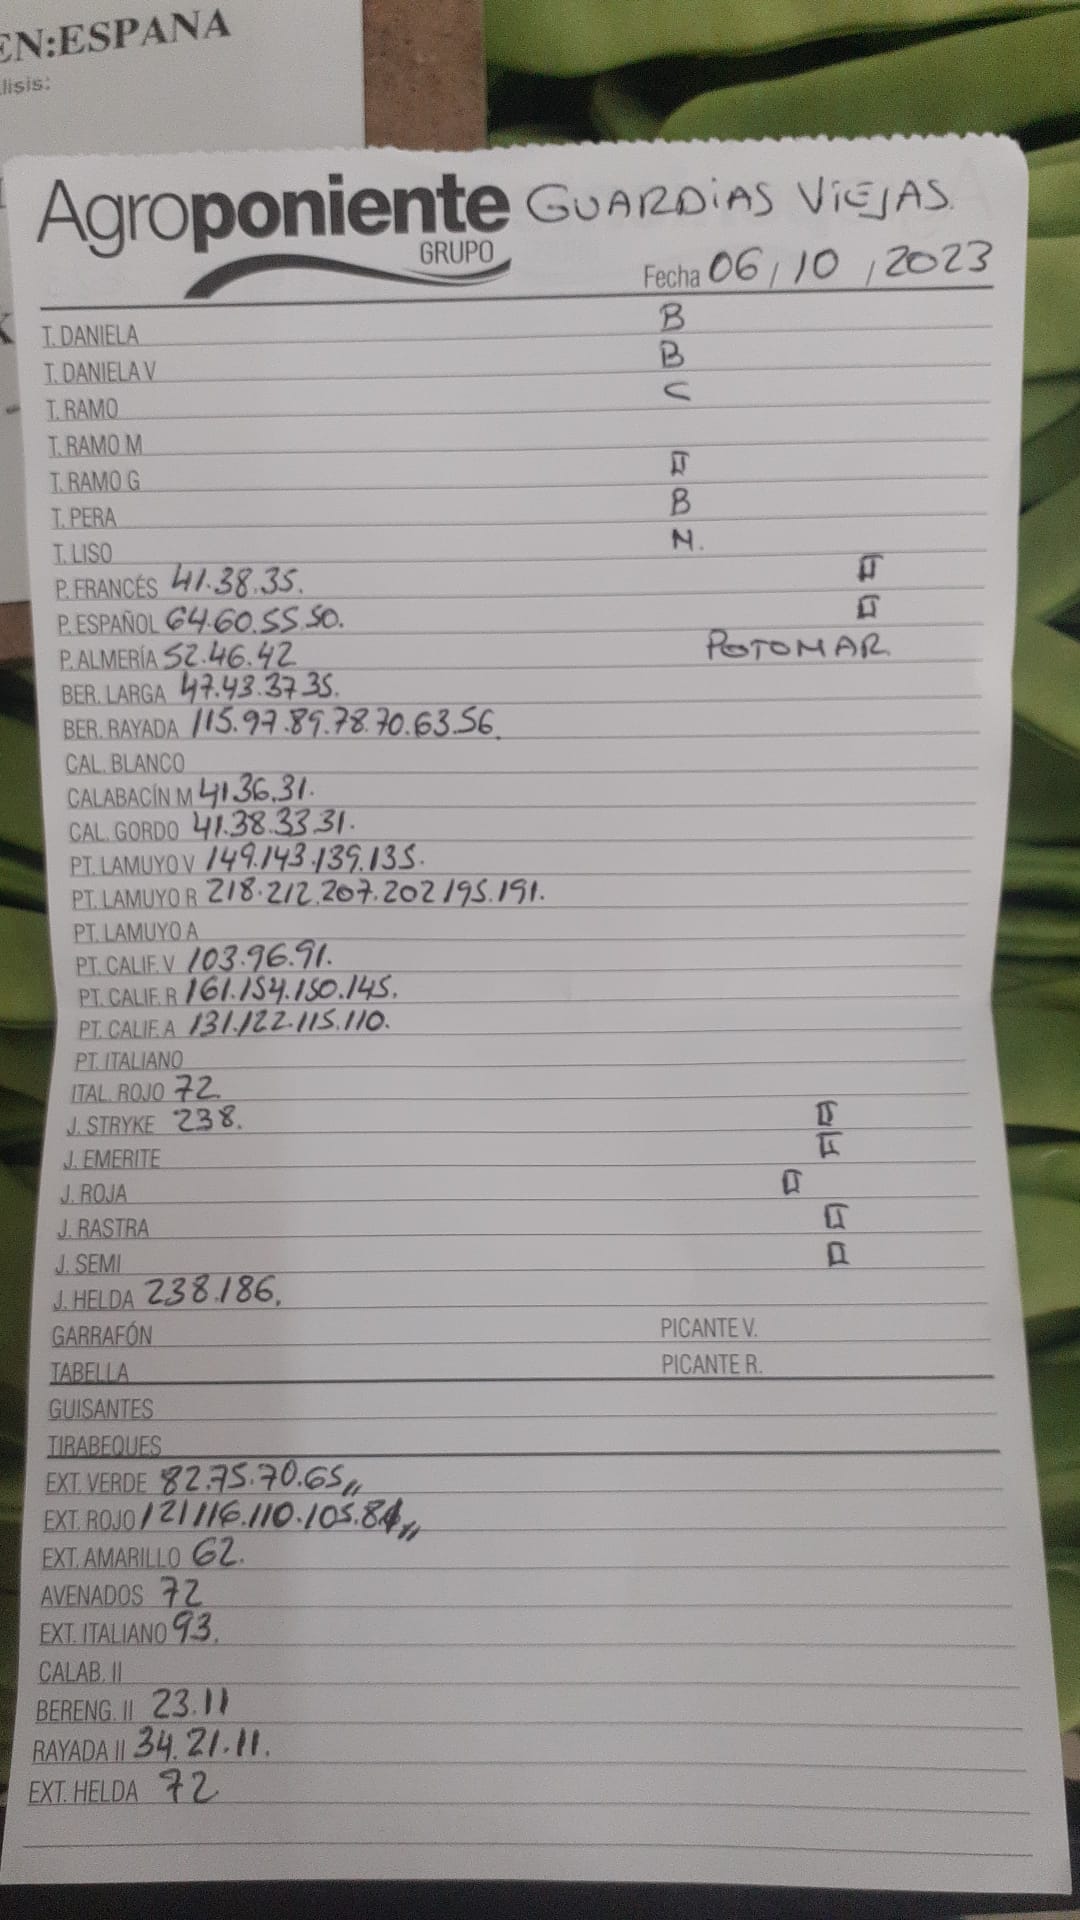 EN:ESPANA
lisis:
Agroponiente GUARDIAS VIEJAS.
GRUPO
Fecha 06/10/2023
T. DANIELA B
T. DANIELA V B
T. RAMO C
T. RAMO M
T. RAMO G II
T. PERA B
T. LISO N.
P. FRANCÉS 41.38.35. II
P. ESPAÑOL 64.60.55.50. II
P. ALMERÍA 52.46.42 POTOMAR
BER. LARGA 47.43.37.35.
BER. RAYADA 115.97.89.78.70.63.56.
CAL. BLANCO
CALABACÍN M 41.36.31.
CAL. GORDO 41.38.33.31.
PT. LAMUYO V 149.143.139.135.
PT. LAMUYO R 218.212.207.202.195.191.
PT. LAMUYO A
PT. CALIF. V 103.96.91.
PT. CALIF. R 161.154.150.145.
PT. CALIF. A 131.122.115.110.
PT. ITALIANO
ITAL. ROJO 72.
J. STRYKE 238. II
J. EMERITE II
J. ROJA II
J. RASTRA II
J. SEMI II
J. HELDA 238.186.
GARRAFÓN PICANTE V.
TABELLA PICANTE R.
GUISANTES
TIRABEQUES
EXT. VERDE 82.75.70.65,,
EXT. ROJO 121.116.110.105.81,,
EXT. AMARILLO 62.
AVENADOS 72
EXT. ITALIANO 93.
CALAB. II
BERENG. II 23.11
RAYADA II 34.21.11.
EXT. HELDA 72